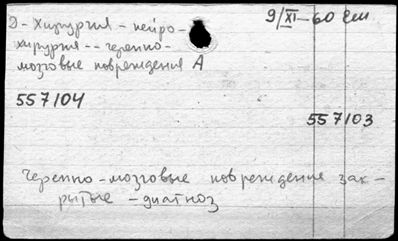 2- Хирургия - нейро-
хирургия -- черепно-
мозговые повреждения А
9/XI-60
557104
557103
Черепно-мозговые повреждение зак-
рытые - диагноз